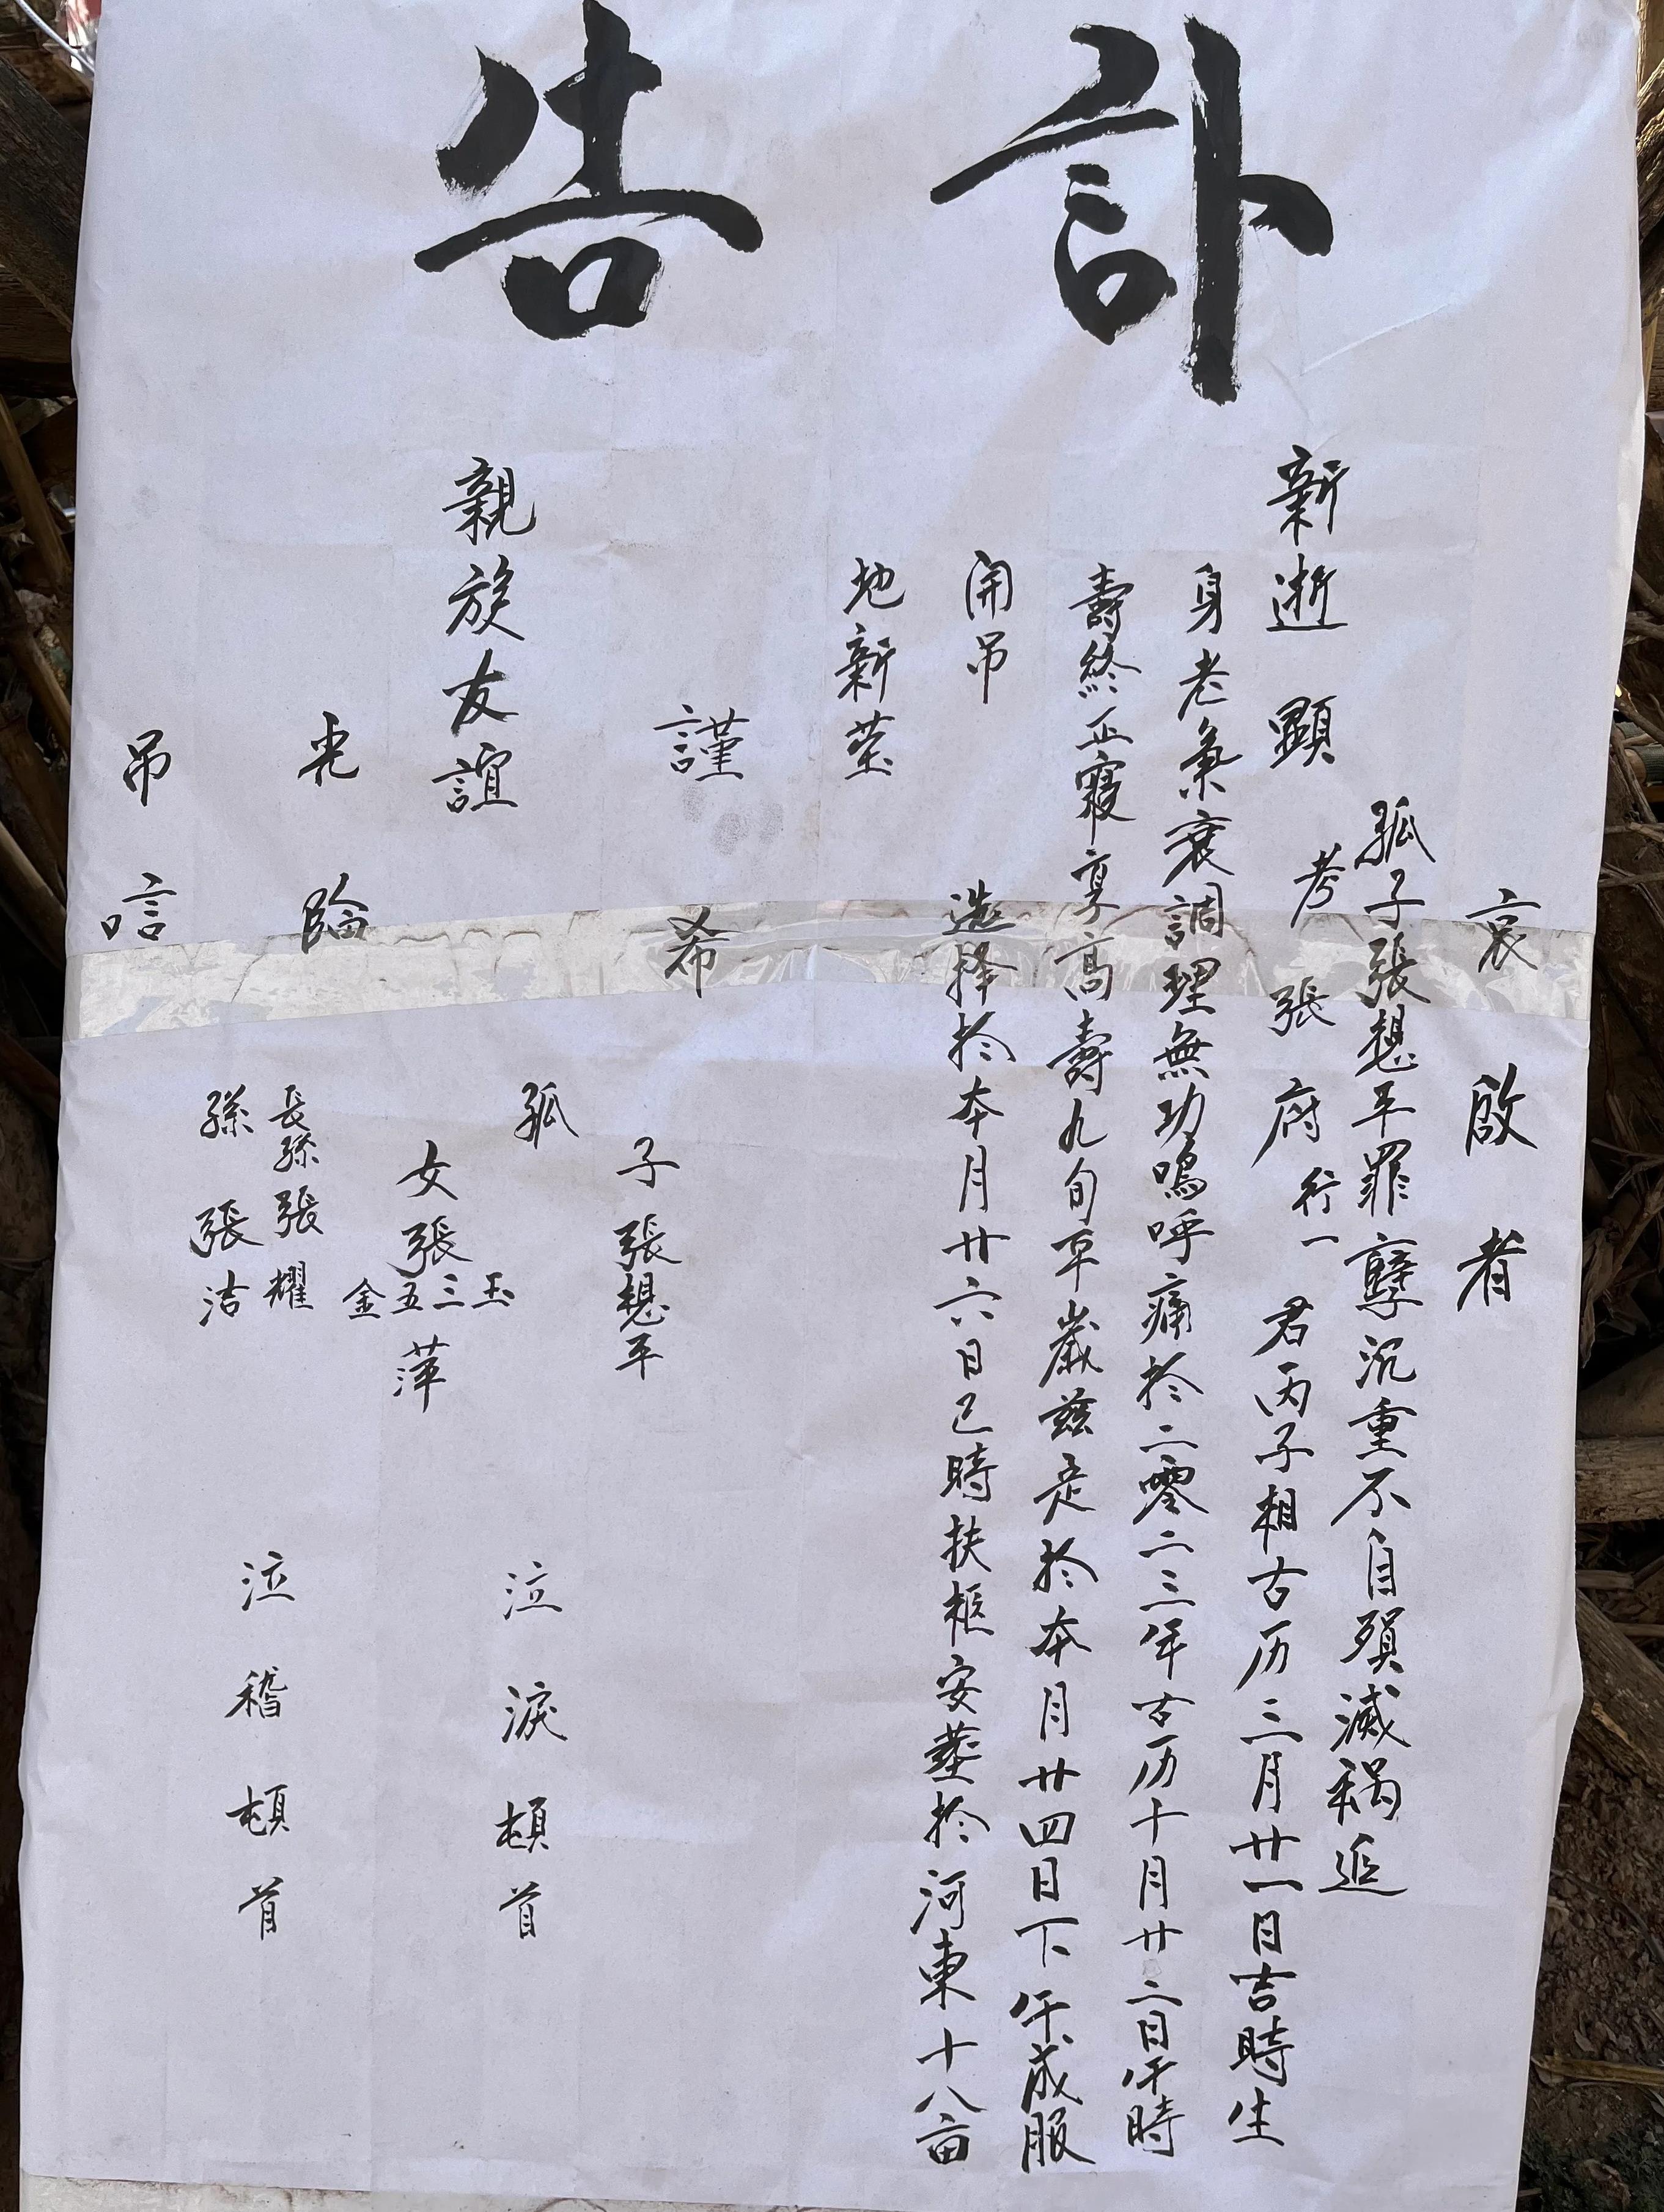 訃告
哀啟者
孤子張想平罪孽沉重不自殞滅禍追
新逝顯考張府行一君丙子相古历三月廿一日吉時生
身老氣衰調理無功嗚呼痛於二零二三年古历十月廿二日午時
壽終正寢享高壽九旬平歲兹定於本月廿四日下午成服
開吊 选择於本月廿六日巳時扶柩安塟於河東十八亩
地新塋
謹希
子張想平
孤
親族友誼
女張玉三五金萍
泣淚頓首
光臨
長孫張耀
孫張洁
泣稽頓首
吊唁